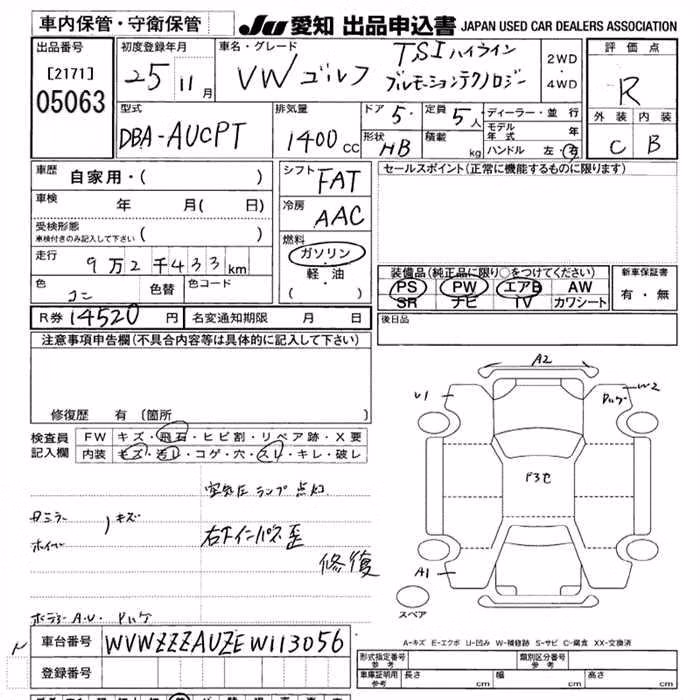 車内保管・守衛保管
JU 愛知 出品申込書 JAPAN USED CAR DEALERS ASSOCIATION
出品番号
[2171]
05063
初度登録年月
25 11月
車名・グレード
VW ゴルフ
TSI ハイライン
ブルーモーションテクノロジー
2WD
・
4WD
評価点
R
外装 内装
C B
型式
DBA-AUCPT
排気量
1400 CC
ドア 5・ 定員 5人
形状 HB 積載 kg
ディーラー・並行
モデル年式 年
ハンドル 左・右
車歴 自家用・( )
車検 年 月( 日)
受検形態
車検付きのみ記入して下さい ( )
走行 9万2千433km
色 コン 色替 色コード
シフト FAT
冷房 AAC
燃料
ガソリン
・
軽・油
( ・ )
セールスポイント(正常に機能するものに限ります)
装備品(純正品に限り○をつけてください)
PS PW エアB AW
SR ナビ TV カワシート
新車保証書
有・無
R券 14520 円 名変通知期限 月 日
後日品
注意事項申告欄(不具合内容等は具体的に記入して下さい)
修復歴 有(箇所 )
検査員記入欄
FW キズ・飛石・ヒビ割・リペア跡・X要
内装 キズ・汚レ・コゲ・穴・スレ・キレ・破レ
空気圧ランプ点灯
ミラー
キズ
右下インパネ歪
修復
A.U.
A2
U1
W2
A1
スペア
A-キズ E-エクボ U-凹み W-補修跡 S-サビ C-腐食 XX-交換済
車台番号 WVWZZZAUZEW113056
登録番号
形式指定番号 参考
類別区分番号 参考
車庫証明用 参考 長さ cm 幅 cm 高さ cm